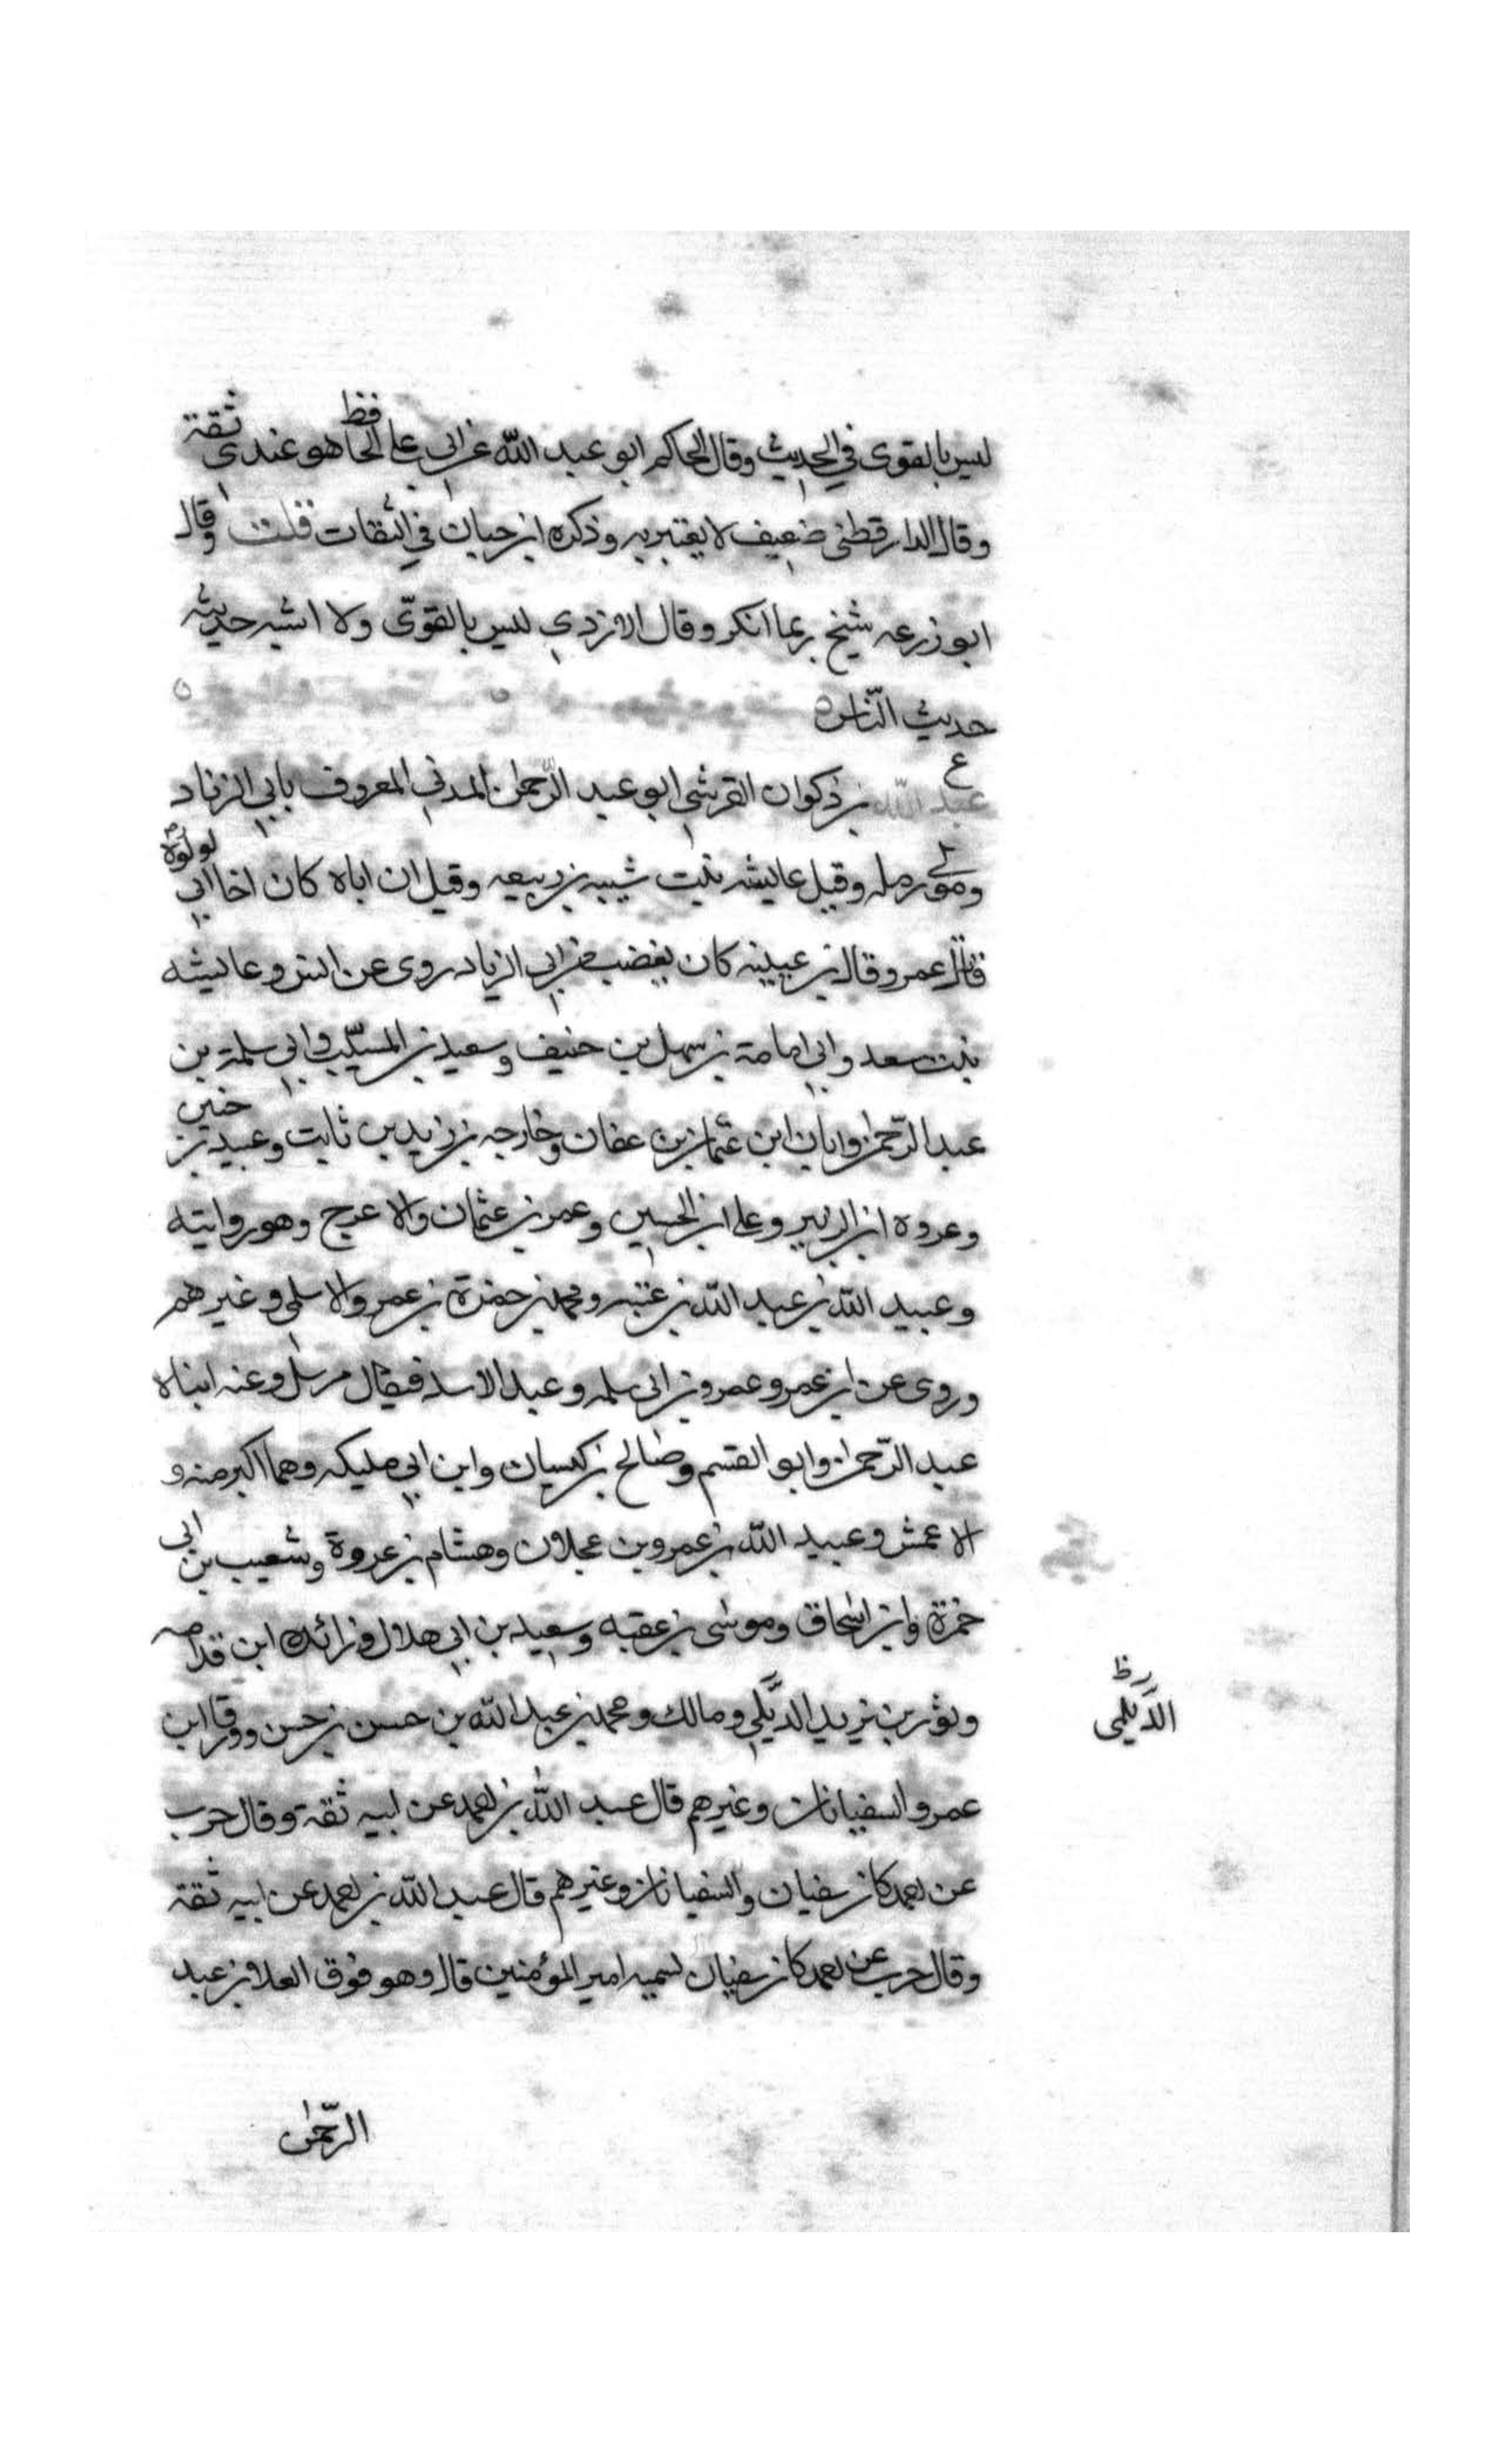 ليس بالقوى في الحديث وقال الحاكم ابو عبد الله عن ابي علي الحافظ هو عندي ثقة
وقال الدارقطني ضعيف لا يعتبر به وذكره ابن حبان في الثقات قلت وقال
ابو زرعه شيخ ربما انكر وقال الازدي ليس بالقوّي ولا اشبه حديثه
حديث النّاس ٥
ع
عبد الله بن ذكوان القرشي ابو عبد الرّحمن المدني المعروف بابي الزناد
ومولى رمله وقيل عايشه بنت شيبه بن ربيعه وقيل ان اباه كان اخا ابي لولوة
قاتل عمر وقال بن عيينه كان يغضب من ابي الزياد روى عن انس وعايشه
بنت سعد وابي امامة بن سهل بن حنيف وسعيد بن المسيّب وابي سلمة بن
عبد الرّحمن وابان ابن عثمان بن عفان وخارجه بن زيد بن ثابت وعبيد بن حنين
وعروه ابن الزبير وعلي ابن الحسين وعمر بن عثمان والاعرج وهو روايته
وعبيد الله بن عبد الله بن عتبه ومحمد بن حمزة بن عمرو الاسلمي وغيرهم
وروى عن ابن عمر وعمرو بن ابي سلمه وعبد الاسد فيقال مرسل وعنه ابناه
عبد الرّحمن وابو القسم وصالح بن كيسان وابن ابي مليكه وهما اكبر منه و
الاعمش وعبيد الله بن عمرو بن عجلان وهشام بن عروة وشعيب بن ابي
حمزة وابن اسحاق وموسى بن عقبه وسعيد بن ابي هلال وزائده ابن قدامه
وثور بن يزيد الدّيلي ومالك ومحمد بن عبد الله بن حسن بن حسن وورقا ابن
الدّيلمي ظ
عمر والسفيانان وغيرهم قال عبد الله بن احمد عن ابيه ثقة وقال حرب
عن احمد كان سفيان والسفيانان وغيرهم قال عبد الله بن احمد عن ابيه ثقة
وقال حرب عن احمد كان سفيان يسميه امير المؤمنين قال وهو فوق العلا بن عبد
الرّحمن